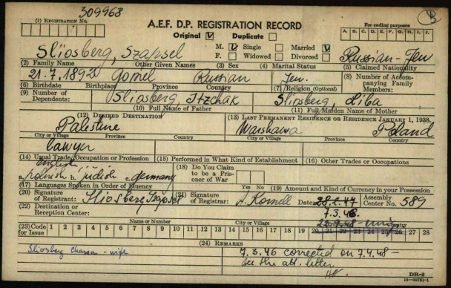 309968
(1) REGISTRATION NO.
A.E.F. D.P. REGISTRATION RECORD
For coding purposes
Original ☑ Duplicate ☐
A. B. C. D. E. F. G. H. I. J.
B
M. ☑ Single ☐ Married ☑
Sliosberg, Szapsel F. ☐ Widowed ☐ Divorced ☐ Russian-Jew
(2) Family Name Other Given Names (3) Sex (4) Marital Status (5) Claimed Nationality
21.7.1892 Gomel Russian Jew.
(6) Birthdate Birthplace Province Country (7) Religion (Optional) (8) Number of Accompanying Family Members:
(9) Number of Dependents: Sliosberg Itzhak Sliosberg, Liba
(10) Full Name of Father (11) Full Maiden Name of Mother
(12) DESIRED DESTINATION (13) LAST PERMANENT RESIDENCE OR RESIDENCE JANUARY 1, 1938.
Palestine Warshawa Poland
City or Village Province Country City or Village Province Country
lawyer
(14) Usual Trade, Occupation or Profession (15) Performed in What Kind of Establishment (16) Other Trades or Occupations
polnish jüdish germany
(17) Languages Spoken in Order of Fluency (18) Do You Claim to be a Prisoner of War Yes No (19) Amount and Kind of Currency in your Possession
(20) Signature of Registrant: (21) Signature of Registrar: Date: Assembly Center No. 589
(22) Destination or Reception Center:
7.3.46
Name or Number City or Village
(23) Code for Issue 1 2 3 4 5 6 7 8 9 10 11 12 13 14 15 16 17 18 19 20 21 22 23 24 25 26 27 28
(24) REMARKS
Sliosberg - wife
7.3.46 corrected on 7.4.48 -
see the att. letter
DR-2